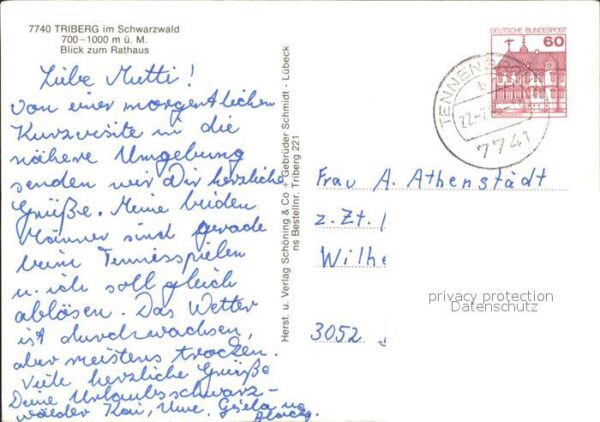 7740 TRIBERG im Schwarzwald
700–1000 m ü. M.
Blick zum Rathaus
Liebe Mutti!
von einer morgentlichen
Kurzvisite in die
nähere Umgebung
senden wir Dir herzliche
Grüße. Meine beiden
Männer sind gerade
beim Tennisspielen
u. ich soll gleich
ablösen. Das Wetter
ist durchwachsen,
aber meistens trocken.
Viele herzliche Grüße
Deine Urlaubsschwarz-
wälder Kai, Uwe, Gisela u.
Herst. u. Verlag Schöning & Co + Gebrüder Schmidt - Lübeck
ns Bestellnr. Triberg 221
DEUTSCHE BUNDESPOST
60
7741
Frau A. Athenstädt
z. Zt.
Wilhe
3052
privacy protection
Datenschutz